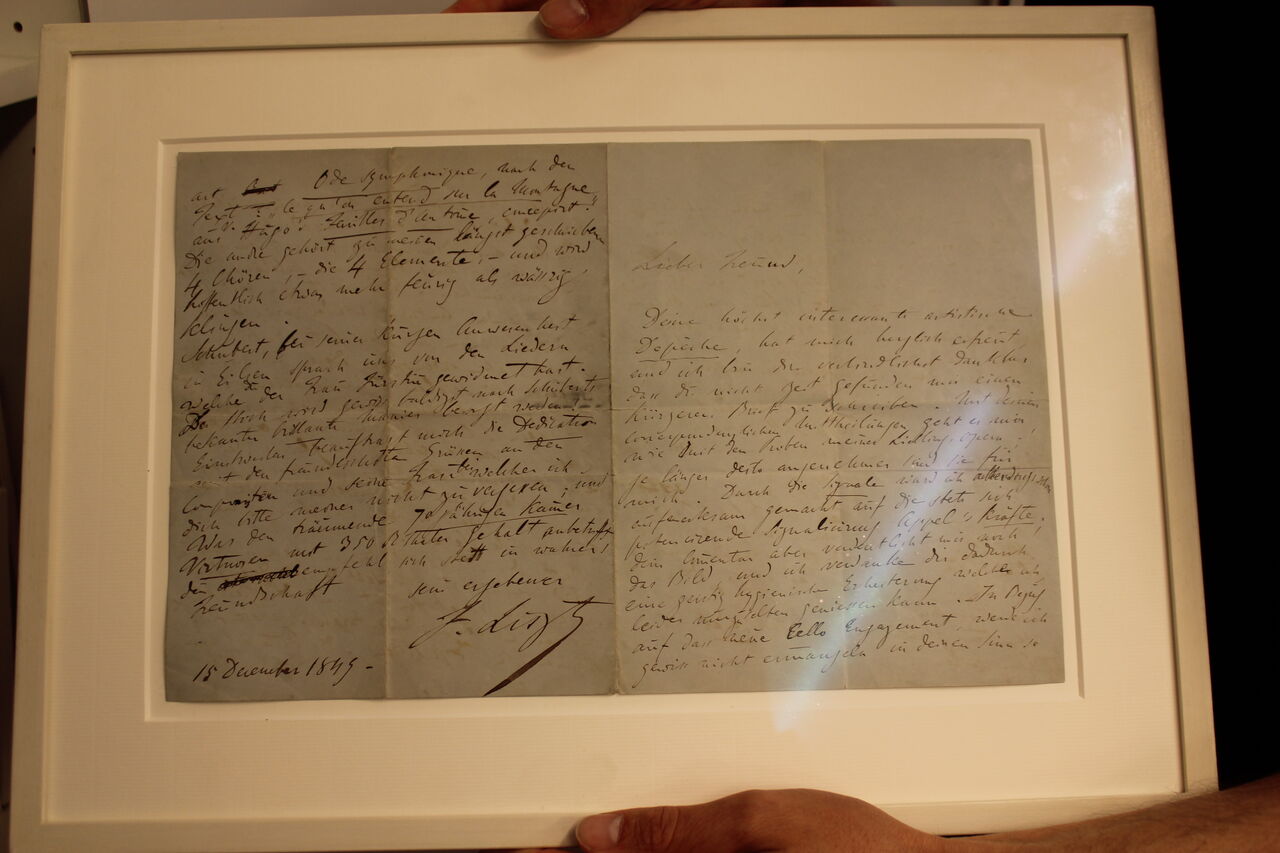 Lieber Freund,
Deine höchst interessante artistische
Depesche, hat mich herzlich erfreut
und ich bin Dir verbindlichst dankbar
dass du nicht Zeit gefunden mir einen
kürzeren Brief zu schreiben. Mit deinen
correspondenzlichen Mittheilungen geht es mir
wie mit den Proben meiner Lieblingsopern!
je länger desto angenehmer sind sie für
mich. Durch die Signale ward ich
aufmerksam gemacht auf die stets sich
potenzirende Signalisirung Appel's Kräfte.
dein Comentar aber verdeutlicht mir noch
das Bild, und ich verdanke dir dadurch
eine geistig hygienische Erheiterung welche ich
leider geniessen kann. In Bezug
auf das neue Cello Engagement, werde ich
gewiss nicht ermangeln in deinem Sinn so
art Ode symphonique, nach den
Text: "Ce qu'on entend sur la Montagne,
aus V. Hugo's Feuilles d'automne,
Die andre gehört zu meinen längst geschriebenen
4 Chören, – die 4 Elemente, – und wird
hoffentlich etwas mehr feurig als wässrig
klingen.
Schubert, bei seiner kurzen Anwesenheit
in Eilsen sprach uns von den Liedern
welche du der Frau Fürstin gewidmet hast.
Der Stich wird gewiss baldigst nach Schuberts
bekannter brillante Manier besorgt werden
Einstweilen beauftragt mich die Dedication
mit den freundlichsten Grüssen an den
Componisten und seine Frau bei welcher ich
dich bitte meiner nicht zu vergessen, und
Was den träumende 70 jährigen Kamer
Virtuosen mit 350 Thaler gehalt anbetrifft
empfehl sich stets in wahrer
Freundschaft
sein ergebener
F. Liszt
15 December 1849 -